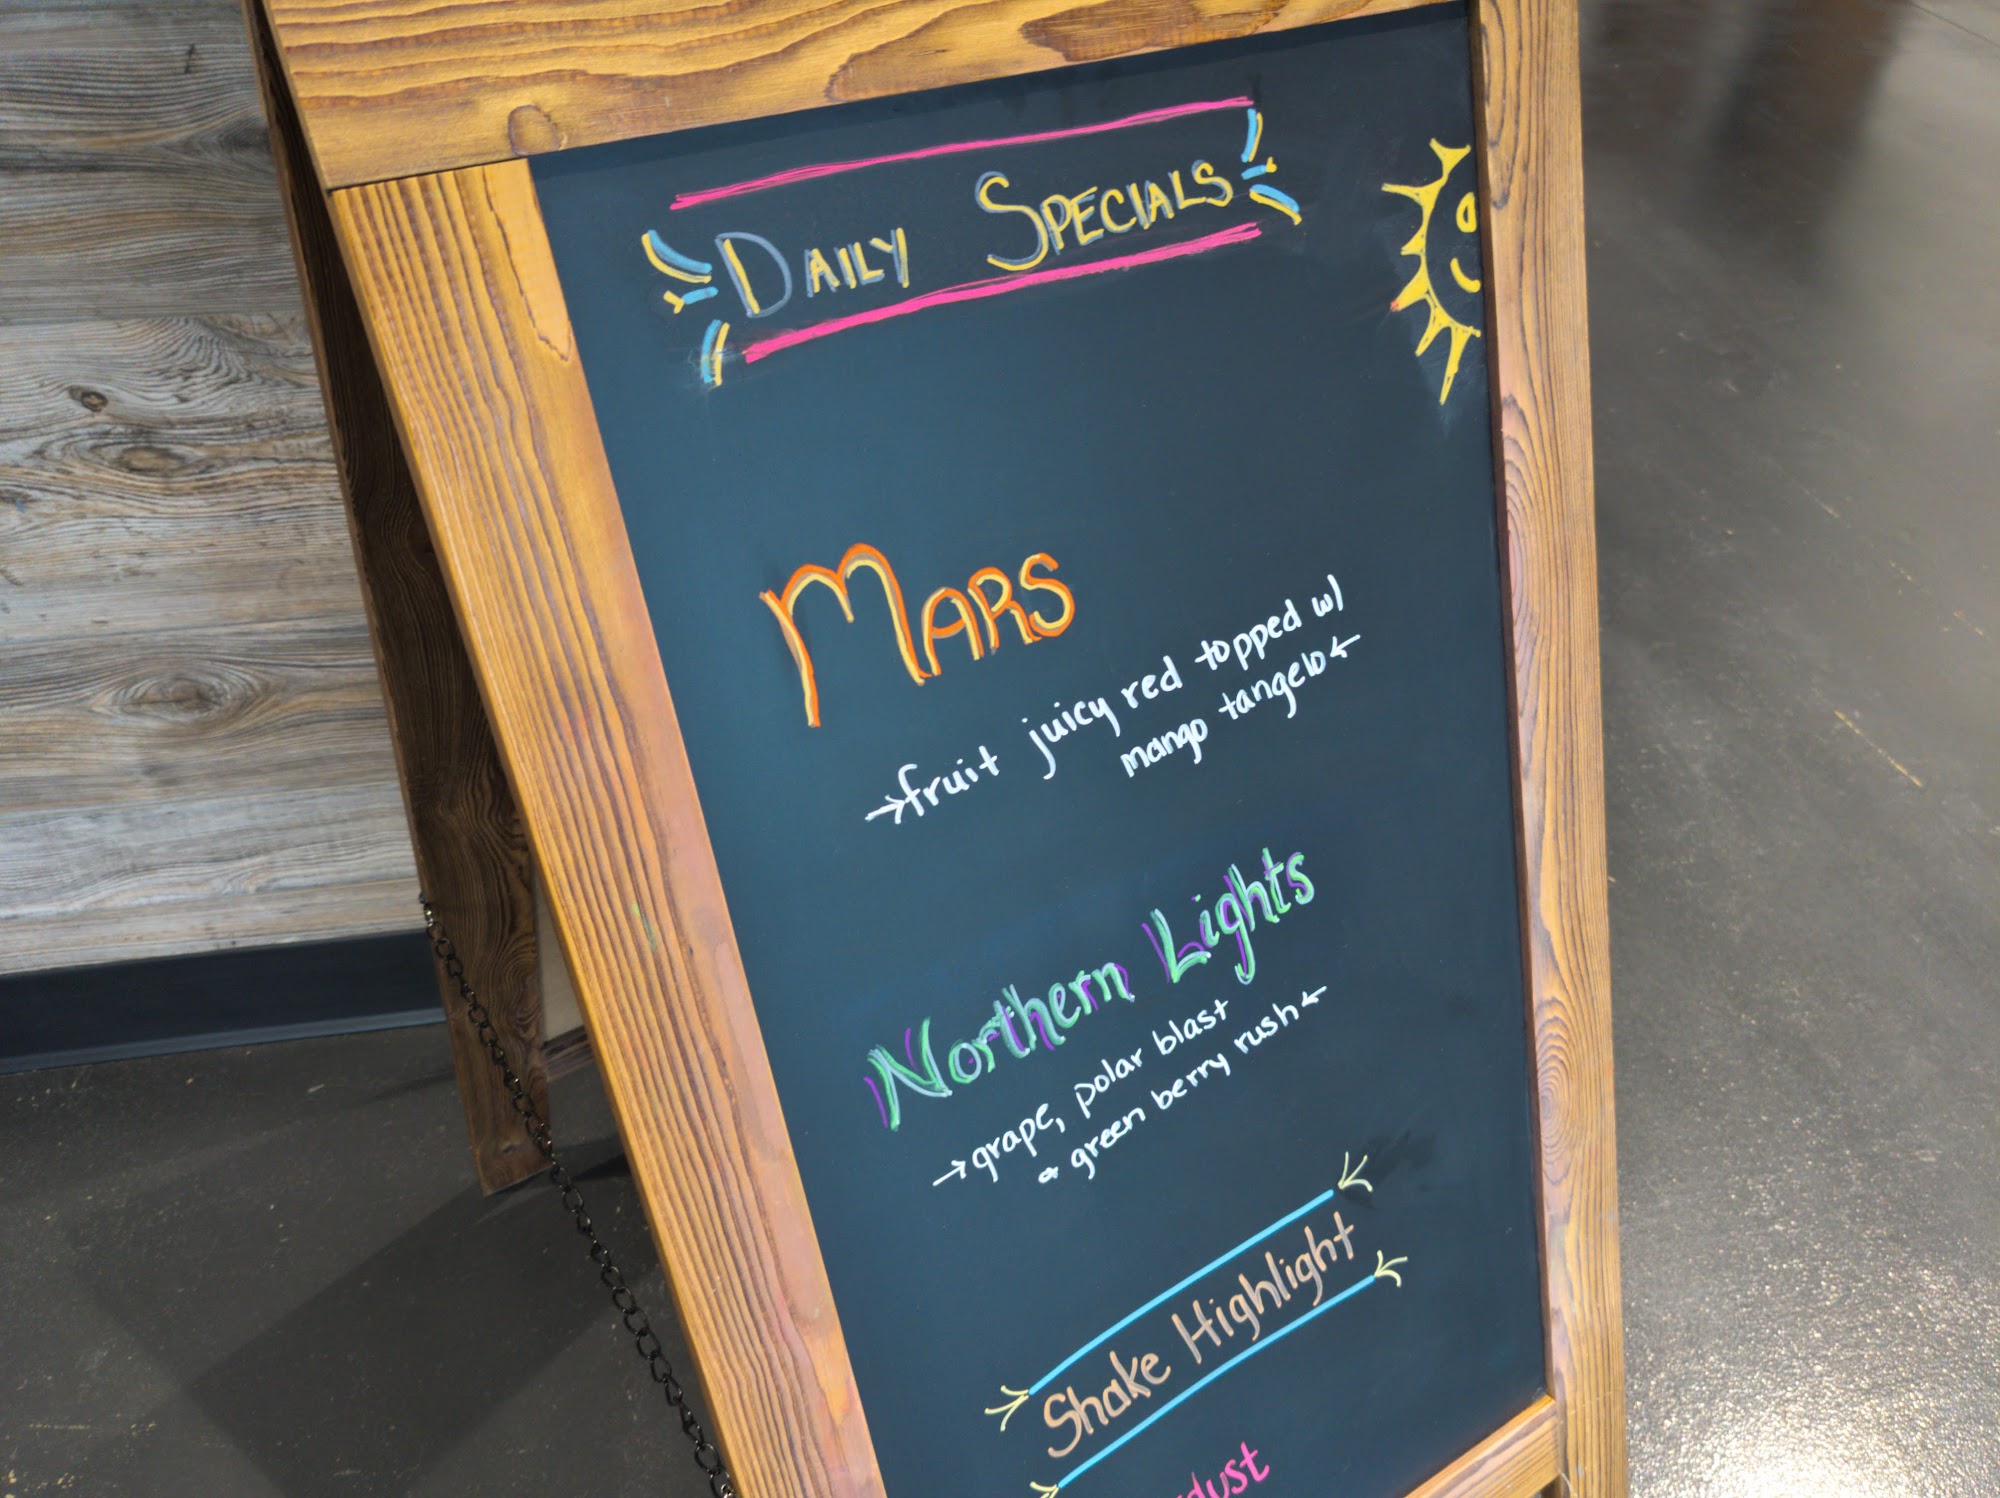 DAILY SPECIALS
MARS
→fruit juicy red topped w/
mango tangelo←
Northern Lights
→grape, polar blast
& green berry rush←
Shake Highlight